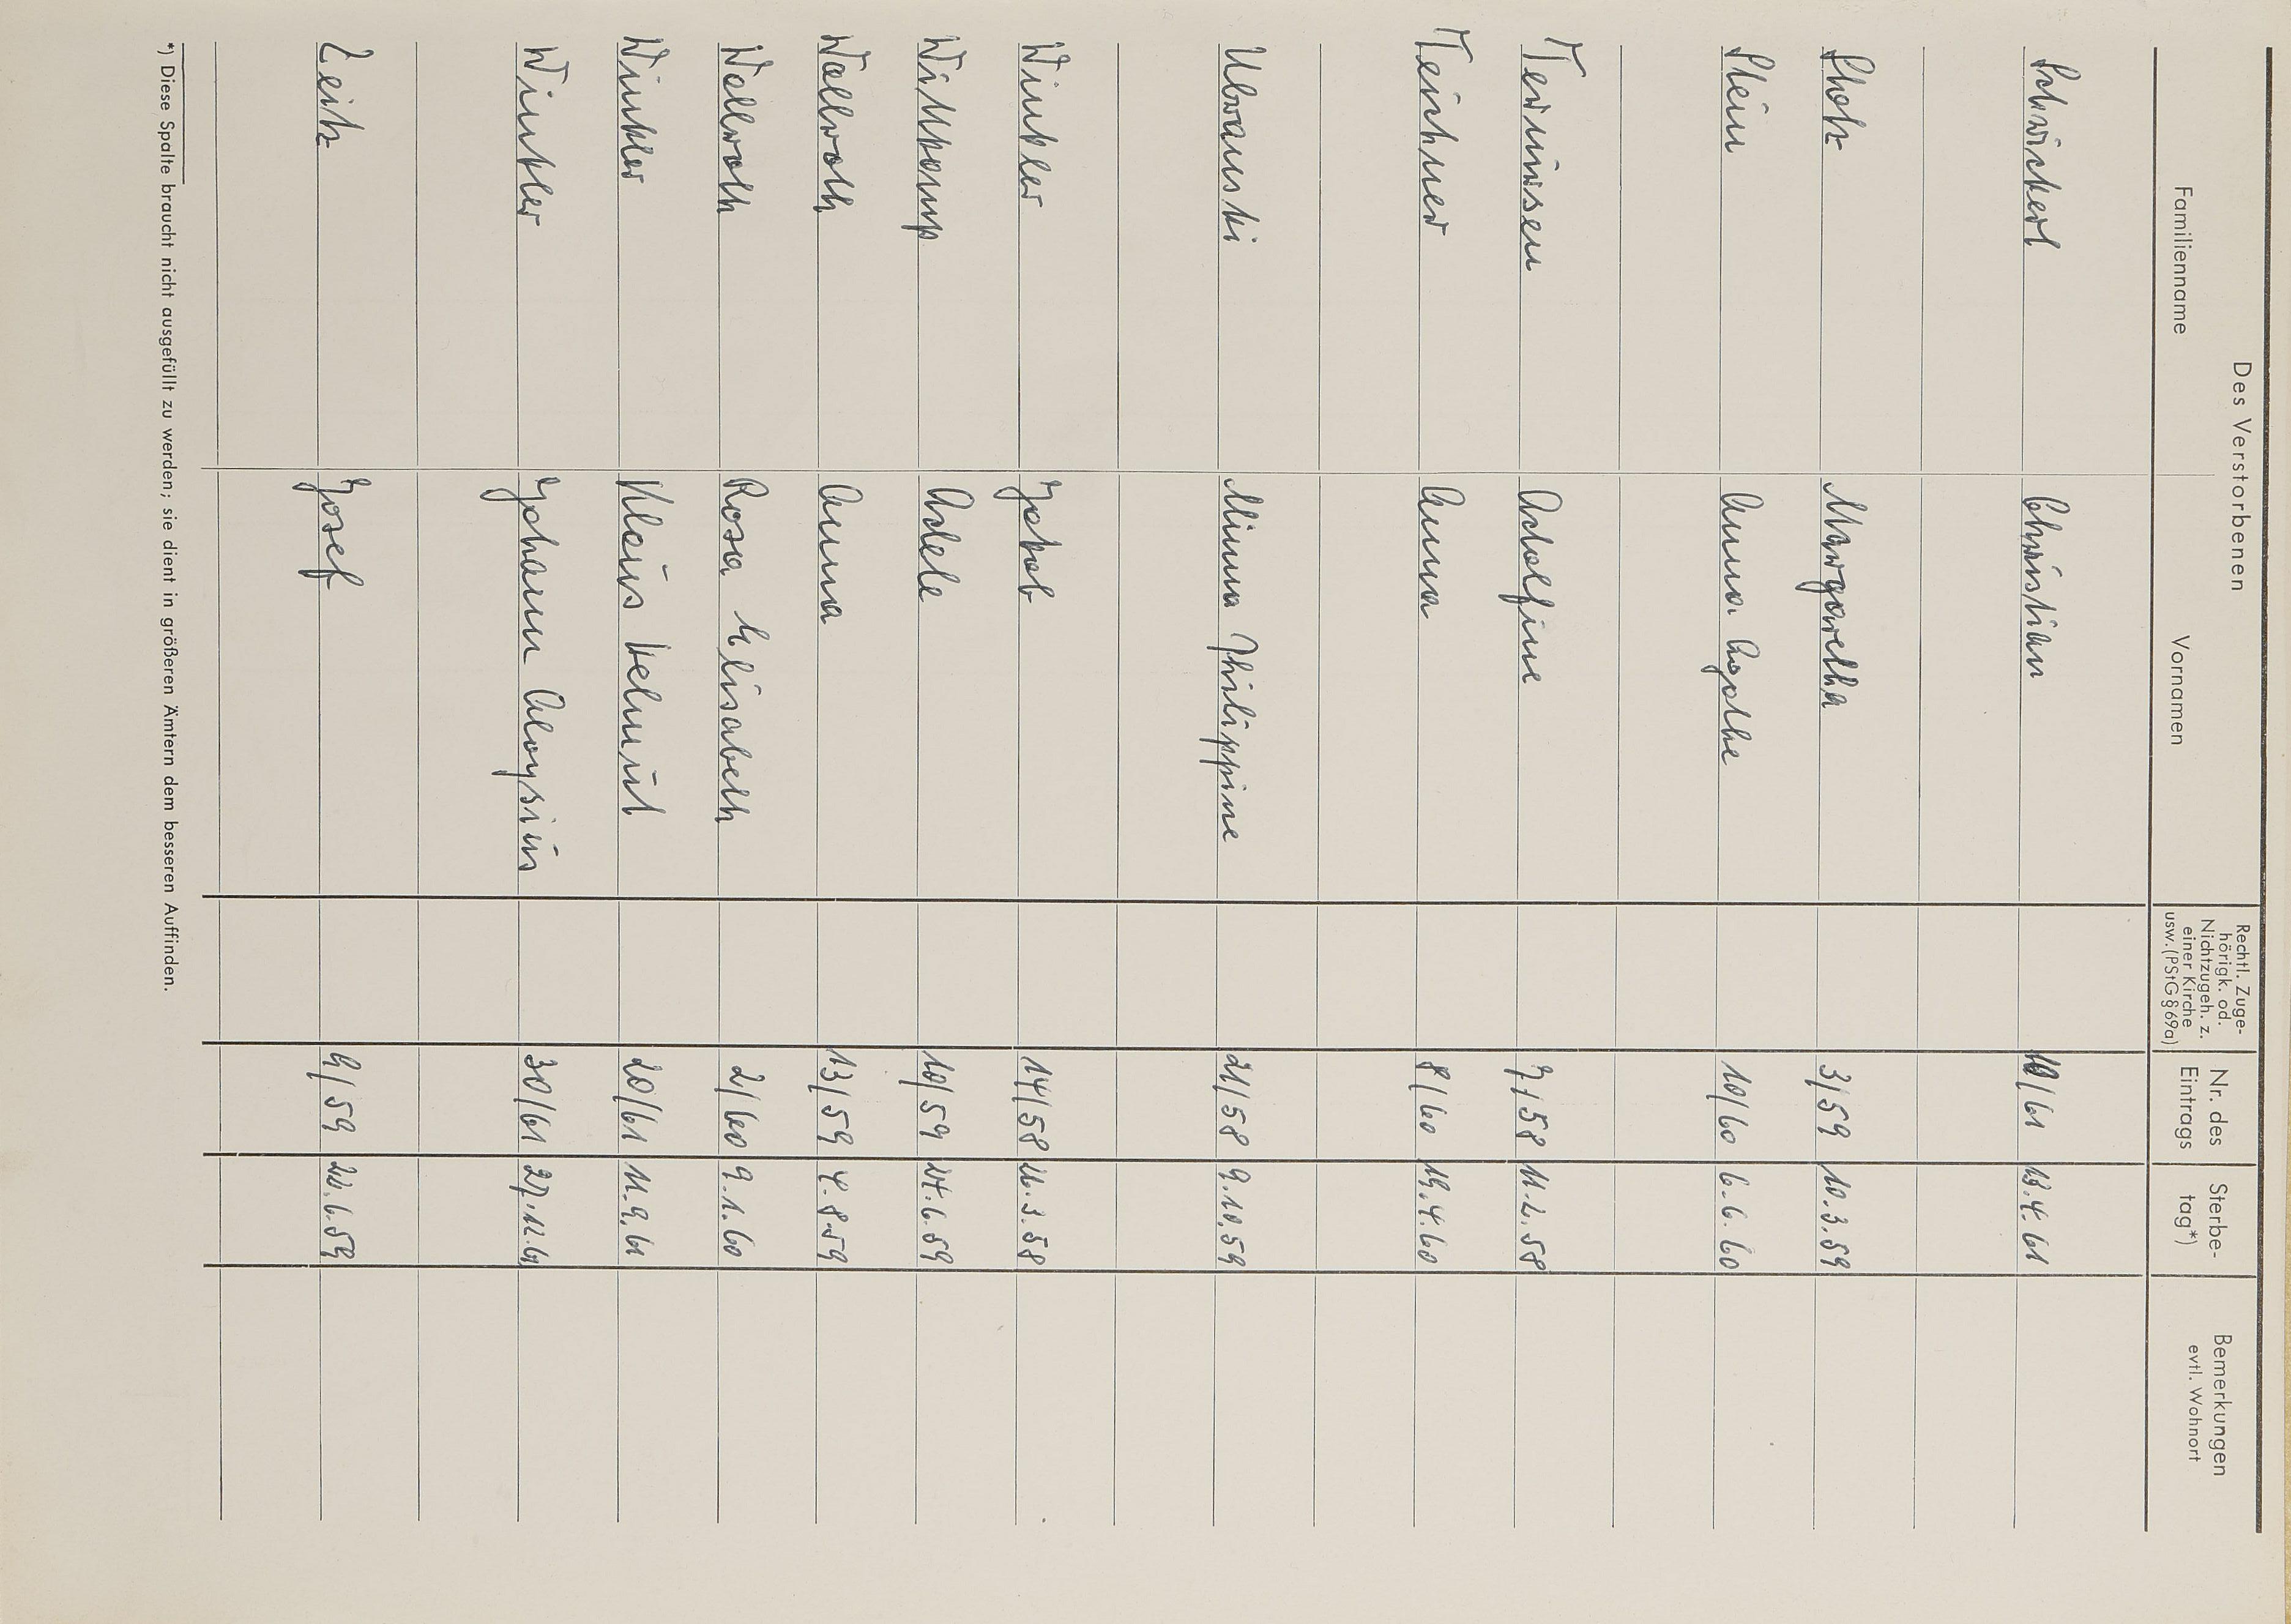 Des Verstorbenen
Familienname Vornamen
Rechtl. Zuge-
hörigk. od.
Nichtzugeh. z.
einer Kirche
usw. (PStG § 69a)
Nr. des
Eintrags
Sterbe-
tag*)
Bemerkungen
evtl. Wohnort
Schwickert Christian 10/61 13.4.61
Stotz Margaretha 3/59 10.3.59
Stein Anna Agathe 10/60 6.6.60
Terwirsen Adolfine 7/58 11.2.58
Teichner Anna 8/60 19.4.60
Urbanski Minna Philippine 21/58 9.10.59
Winkler Jakob 14/58 22.3.58
Wittkamp Adele 10/59 24.6.59
Wallroth Anna 13/59 4.8.59
Wallroth Rosa Elisabeth 2/60 9.1.60
Winkler Klaus Helmut 20/61 11.9.61
Winkler Johann Aloysius 30/61 27.12.61
Zeitz Josef 9/59 22.6.59
*) Diese Spalte braucht nicht ausgefüllt zu werden; sie dient in größeren Ämtern dem besseren Auffinden.